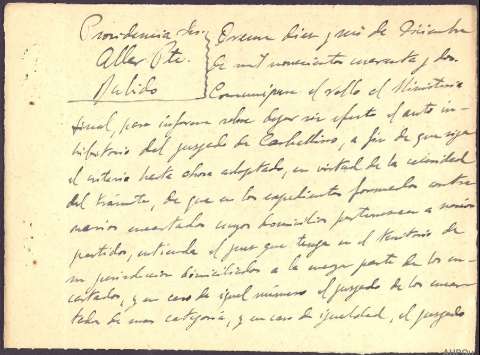 Providencia Sres.
Aller Pte.
Pulido
Orense diez y seis de Diciembre
de mil novecientos cuarenta y dos.
Comuníquese el rollo al Ministerio
fiscal, para informe sobre dejar sin efecto el auto in-
hibitorio del juzgado de Carballino, a fin de que siga
el criterio hasta ahora adoptado, en virtud de la celeridad
del trámite, de que en los expedientes formados contra
varios encartados cuyos domicilios pertenezcan a varios
partidos, entienda el juez que tenga en el territorio de
su jurisdicción domiciliados a la mayor parte de los en-
cartados, y en caso de igual número el juzgado de los encar-
tados de mas categoría, y en caso de igualdad, el juzgado